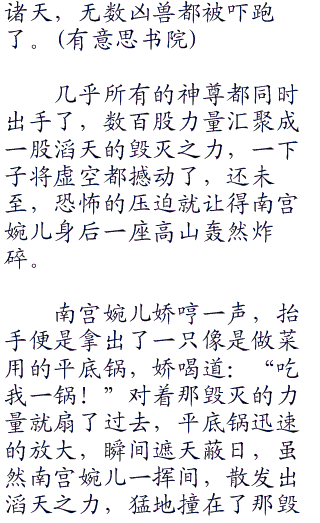 诸天，无数凶兽都被吓跑
了。(有意思书院)
几乎所有的神尊都同时
出手了，数百股力量汇聚成
一股滔天的毁灭之力，一下
子将虚空都撼动了，还未
至，恐怖的压迫就让得南宫
婉儿身后一座高山轰然炸
碎。
南宫婉儿娇哼一声，抬
手便是拿出了一只像是做菜
用的平底锅，娇喝道：“吃
我一锅！”对着那毁灭的力
量就扇了过去，平底锅迅速
的放大，瞬间遮天蔽日，虽
然南宫婉儿一挥间，散发出
滔天之力，猛地撞在了那毁